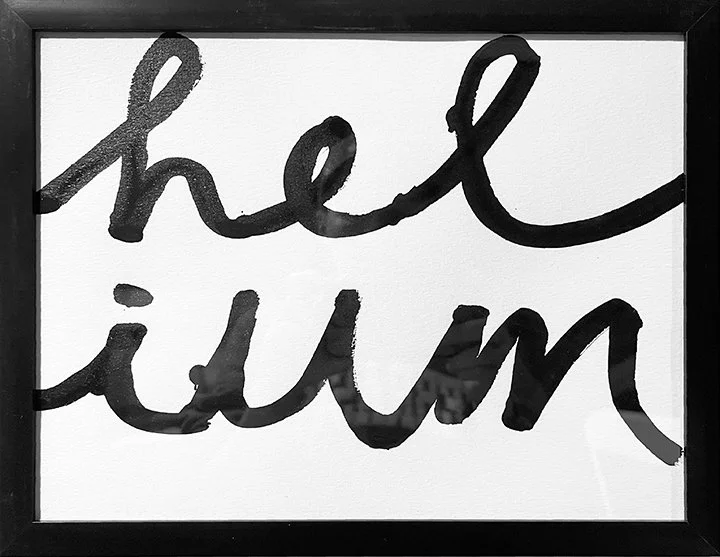 hel
ium